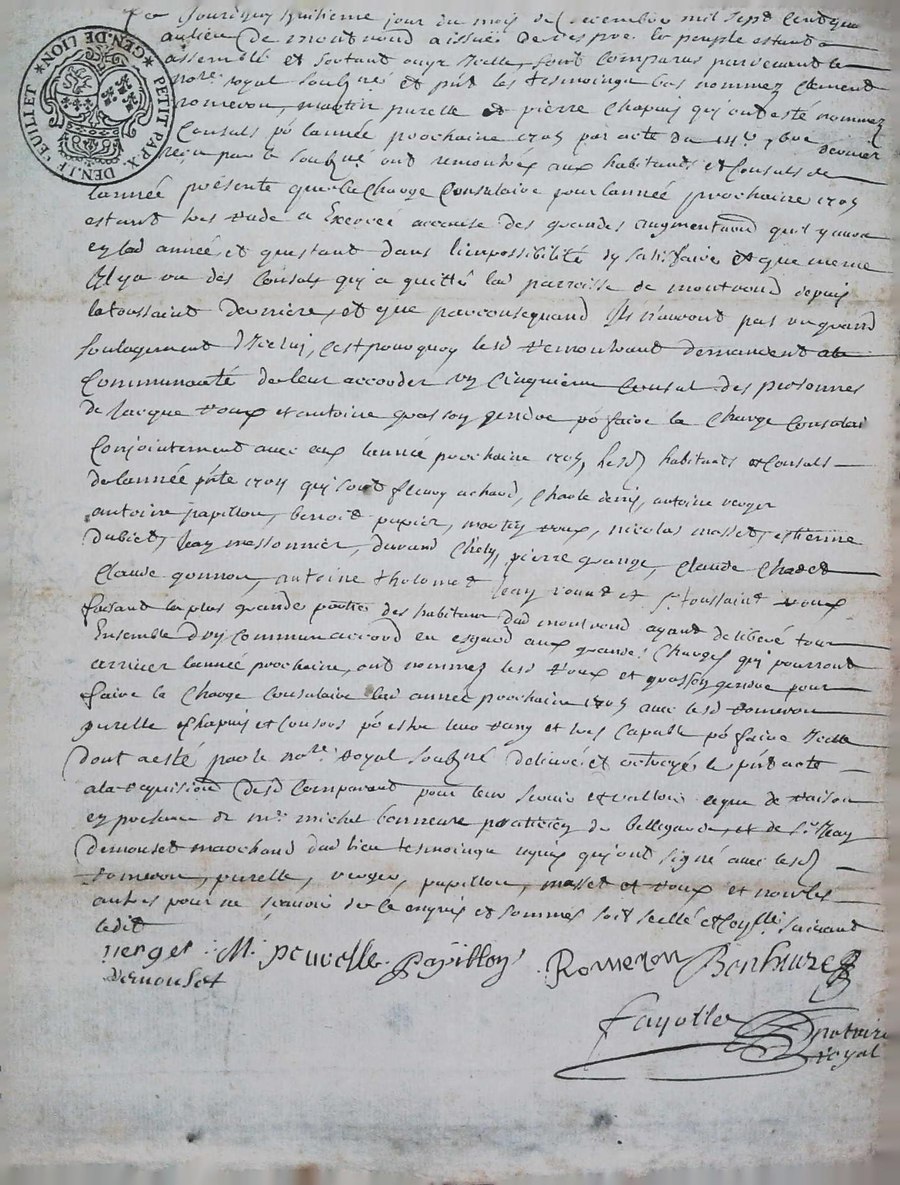 GEN. DE LION ★ PETIT PAP. X. DEN. LE FEUILLET ★
jour du mois de decembre mil sept cent
au lieu de montrond a issue de vespre le peuple estant
assemblé et sortant sont comparus pardevant le
no.re royal soubzné et p.nt les tesmoings bas nommez Clement
romeron, martin purelle et pierre Chapuis qui ont esté nommez
Consuls po.r lannée prochaine 1705 par acte du 9bre dernier
receu par le soubzné ont remontré aux habitants et Consuls de
lannée presente que la Charge Consulaire pour lannée prochaine 1705
estant tres rude a Exercer a cause des grandes augmentaõns qu'il y aura
en lad année, et questant dans limpossibilité dy satisfaire et que meme
Il y a un des Consuls qui a quitté lad parroisse de montrond depuis
la toussaint derniere, et que par consequand Ils n'auront pas un grand
soulagement d'Iceluy, c'est pourquoy lesd remontrant demandent a la
Communauté de leur accorder un Cinquieme Consul des personnes
de Jacque roux et antoine grosson gendre po.r faire la Charge Consulai
Conjointement avec eux lannée prochaine 1705, lesd habitants et Consuls
de lannée p.nte qui sont fleury achard, Charle denis, antoine verger
antoine papillon, benoit papier, roux, nicolas masset, estienne
dubiet, Jean messonnier, durand Chely, pierre grange, Claude
Claude gonnon, antoine tholomet Jean et s.r toussaint roux
faisant la plus grande partie des habitans dud montrond ayant deliberé tous
Ensemble d'un commun accord en esgard aux grandes Charges qui pourront
arriver lannée prochaine, ont nommez lesd roux et grosson gendre pour
faire la Charge Consulaire lad année prochaine 1705 avec lesd romeron
purelle Chapuis et Consors po.r estre leur rang et tres Capable po.r faire Icelle
dont a esté par le no.re royal soubzné delivré et octroyé le p.nt acte
a la requision desd Comparant pour leur servir et valloir ce que de raison
en presence de m.re michel bonneure praticien de bellegarde, et de s.r Jean
demouset marchand dud lieu tesmoings requis qui ont signé avec lesd
romeron, purelle, verger, papillon, masset et roux et non les
autres pour ne scavoir de ce enquis et sommes soit scellé et suivant
ledit
verger M. peurelle Papillon Romeron Bonheure
demouset
Fayolle notaire
royal